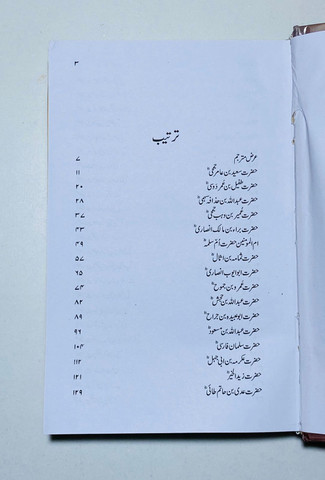 ۳
ترتیب
عرض مترجم ۷
حضرت سعید بن عامر جمحیؓ ۱۱
حضرت طفیل بن عمرو دوسیؓ ۲۰
حضرت عبداللہ بن حذافہ سہمیؓ ۲۸
حضرت عمیر بن وہب جمحیؓ ۳۷
حضرت براء بن مالک انصاریؓ ۴۳
ام المومنین حضرت ام سلمہؓ ۴۹
حضرت ثمامہ بن اثالؓ ۵۷
حضرت ابوایوب انصاریؓ ۶۵
حضرت عمرو بن جموحؓ ۷۴
حضرت عبداللہ بن جحشؓ ۸۲
حضرت ابوعبیدہ بن جراحؓ ۸۹
حضرت عبداللہ بن مسعودؓ ۹۶
حضرت سلمان فارسیؓ ۱۰۴
حضرت عکرمہ بن ابی جہلؓ ۱۱۲
حضرت زید الخیرؓ ۱۲۱
حضرت عدی بن حاتم طائیؓ ۱۲۹